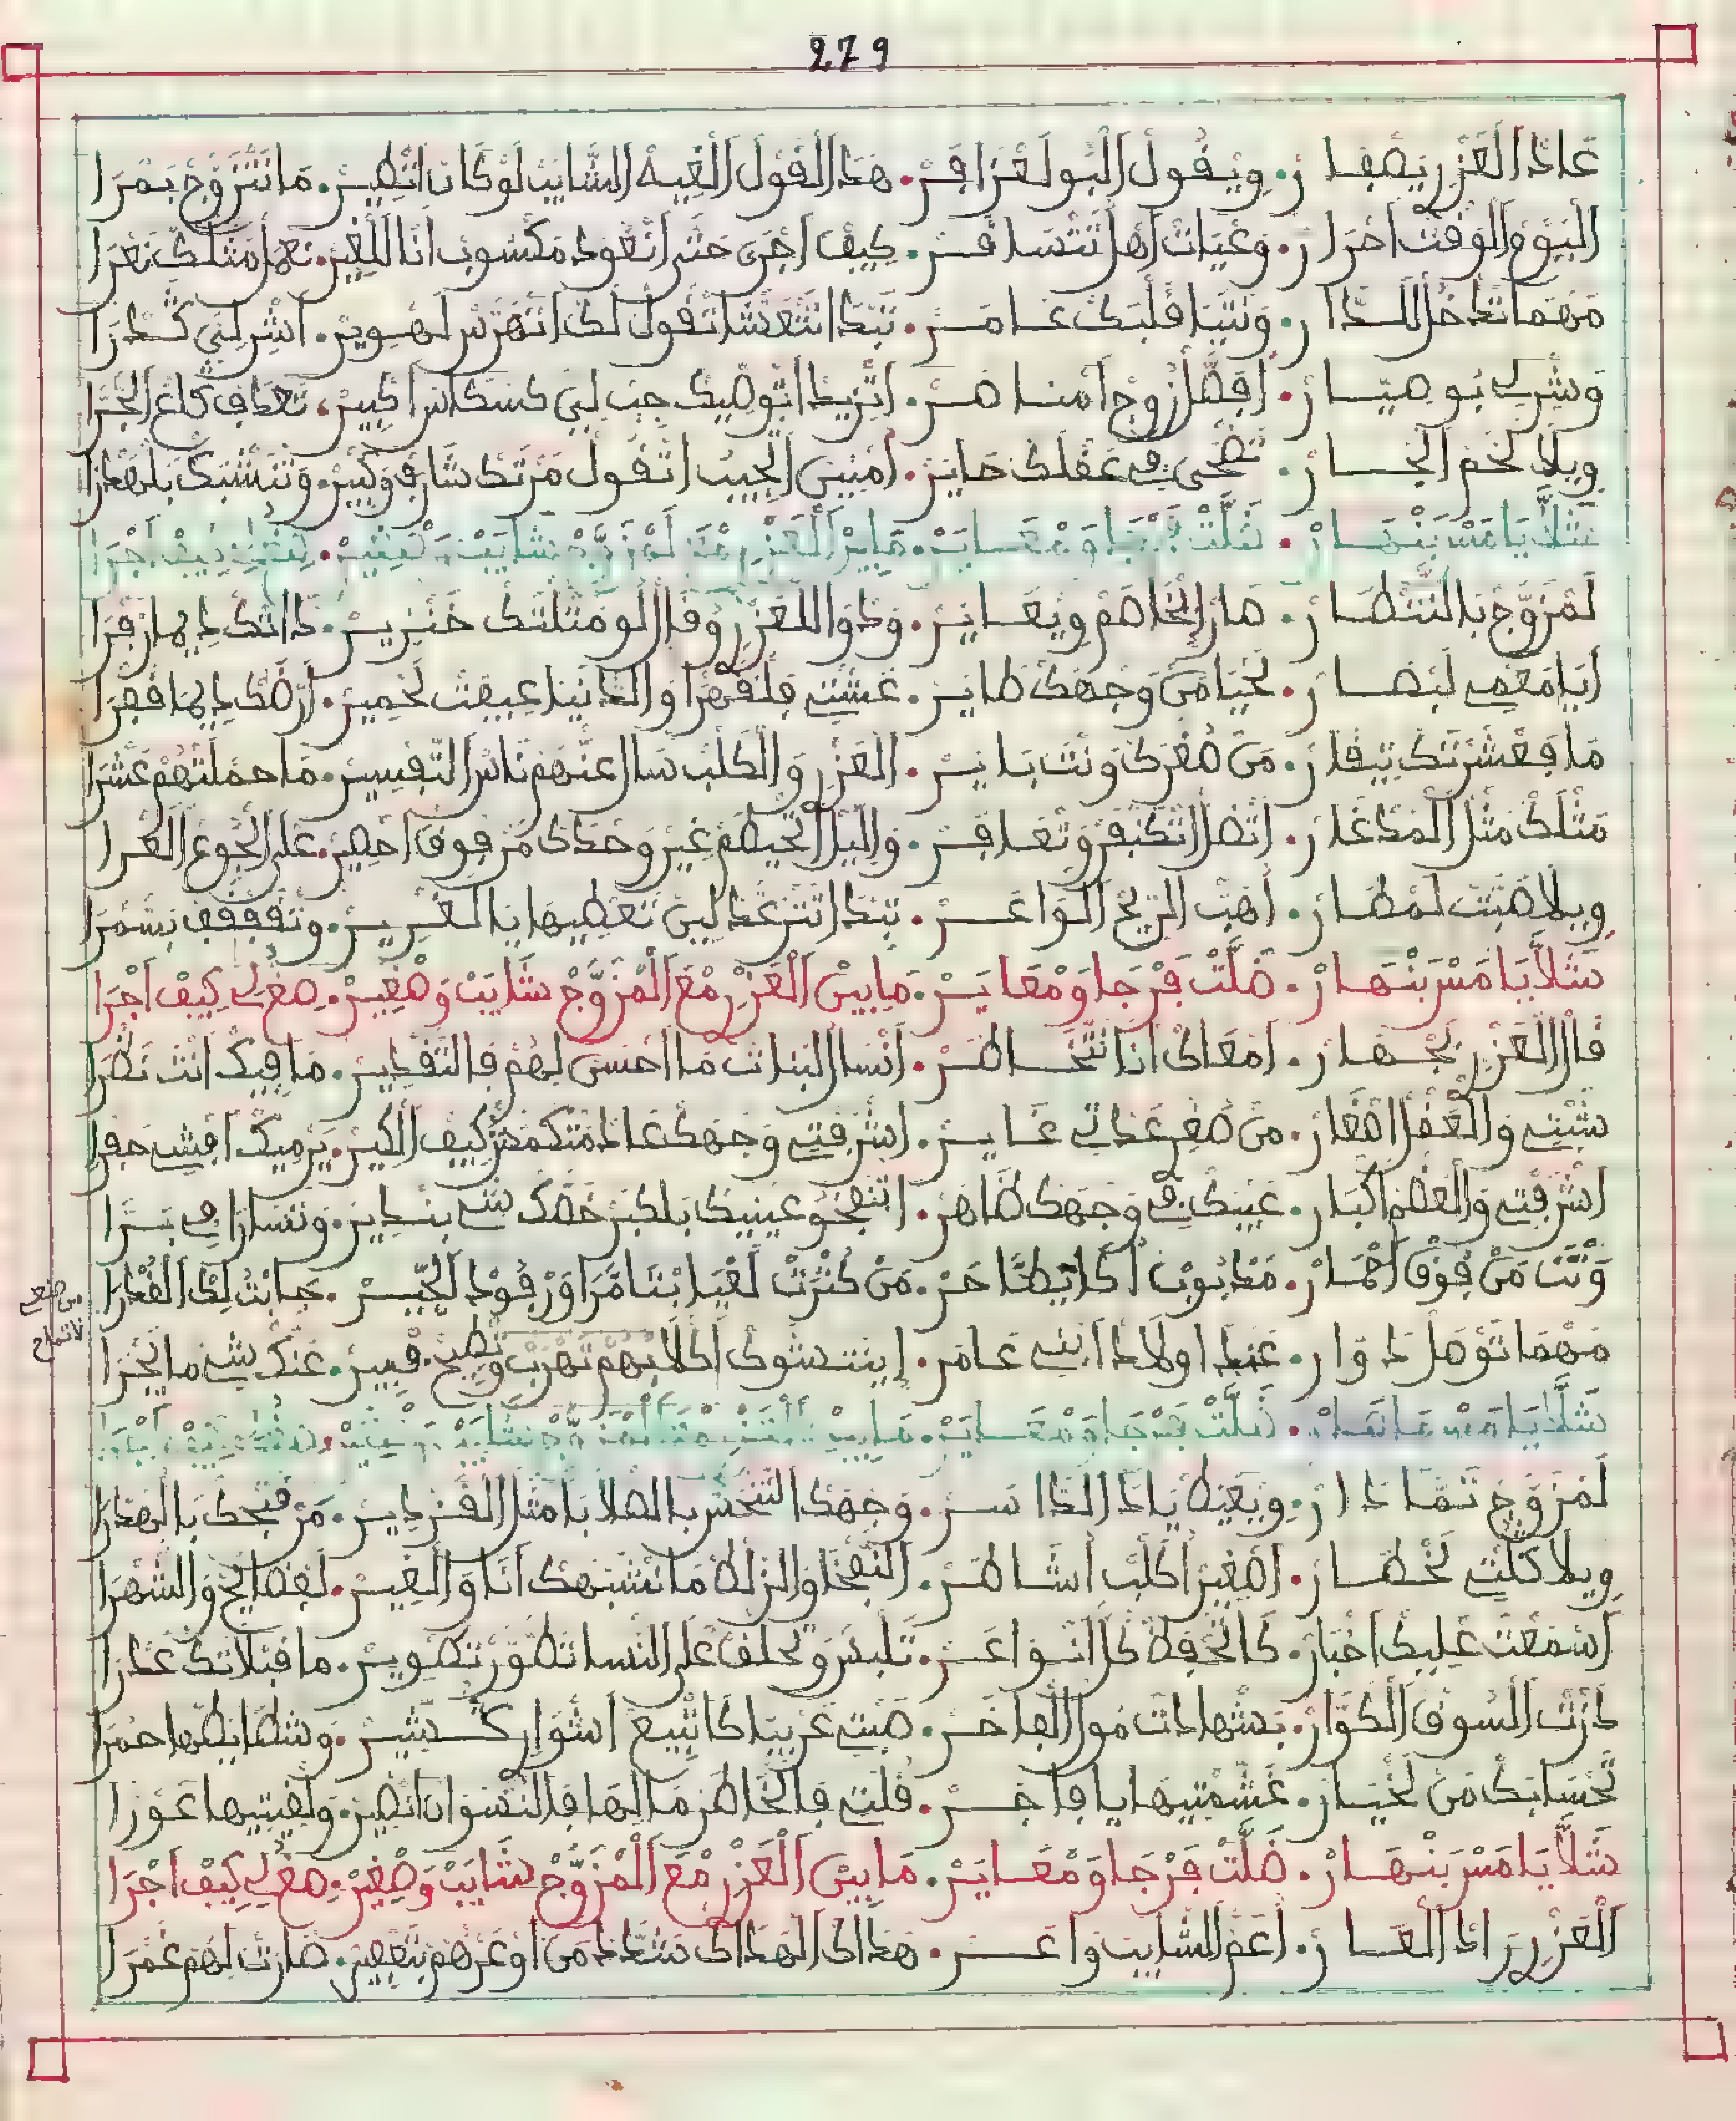 279
عاد العزري يصفار. ويقول البو لعزافر. هذا القول الغيه الشايب لو كان اتطير. ما تتزوج بمرا
اليوم الوقت اجرار. وعيات اهل تتسافر. كيف اجرى حتى اتعود مكسوب انا للغير. تعمل مثلك نعرا
مهما تدخل للدار. وتنيا قلبك عامر. تبدا تتعشا تقول لك اتهرس لهوير. اشر لني كدرا
وشري بوصيار. افضل زوج امناصر. اتزيد اتوصيك جب لي كسكاس اكبير. تعداف كاع الجرا
ويلا لخم الخار. تضحى في عقلك حاير. امنين الجيب اتقول مرتك شارف وكبير. وتنشبك بلهدرا
شلا يا مس بنهار. ضلت فرجا ومعاير. مابين العزري مع المزوج شايب وصغير. صغى لي كيف اجرا
لمزوج بالنتصار. صار الخاصم ويعاير. ودوا للعزري وقال لو مثلتك خنزير. ذاتك ديما زفرا
ايا معمي لبصار. لحيا من وجهك طاير. عشتي فلقهرا والدنيا عييت لخمير. ارضك ديما قفرا
ما فعشرتك تيقار. من صغرك ونت باير. العزري والكلب سال عنهم ناس التفيسير. ما حملتهم عشرا
مثلك مثل المدغار. اتضل اتكنفر وتعافر. والليل الحيطم غير وحدك مرفوق احصير. على الجوع العرا
ويلا صبت لمطار. اهب الريح الواعر. تبدا تترعد لين تعطيها يا لعرير. وتقفقف بسمرا
شلا يا مس بنهار. ضلت فرجا ومعاير. مابين العزري مع المزوج شايب وصغير. صغى لي كيف اجرا
قال العزري بجهار. امعاك انا نتخاطر. انسال البنات ما احسن لهم فالتقدير. ما فيك انت نظرا
شبتي والعقل اصغار. من صغر عدتي غاير. اشرفتي وجهك عاد متكمش كيف الكير. يرميك افشي حفرا
اشرفتي والعظم اكبار. عيبك في وجهك ظاهر. اتنفخو عينيك بلكبر خصك شي بندير. وتتسارا في برا
ونت من فوق احمار. مدبوب اكرايطا حر. من كثرت لغيا بنتا مرا ورقود الجير. جابت لك القدرا
من ضعي
فالتماح
مهما توصل دوار. عند اولاد ابني عامر. اينتشوك اكلابهم تهرب وتطيح فبير. عندك شي ما يجرا
شلا يا مس بنهار. ضلت فرجا ومعاير. مابين العزري مع المزوج شايب وصغير. صغى لي كيف اجرا
لمزوج تمادار. ويعيط ياد الداسر. وجهك التنحس بالصلابا مثل القزدير. مرفحك بالهدرا
ويلا كلتي لخضار. اصغير اكلب اشاطر. النفخا والزلط ما تشبهك انا والغير. لفضايح والشهرا
اسمعت عليك اخبار. كا تحفظ كل انواعر. تلبس وتحلف على النسا تطور تطوير. ما فبلاتك عدرا
درت السوق الكوار. بشهادات مول الفاخر. صبتي غريبا كا تبيع اشوار كشير. وشطابطها حمرا
تحسابك من لخيار. غشمتيها يا فاجر. قلت فالخاطر مالها فالنسوان انضير. ولقيتيها عورا
شلا يا مس بنهار. ضلت فرجا ومعاير. مابين العزري مع المزوج شايب وصغير. صغى لي كيف اجرا
العزري راد العار. اعم للشايب واعر. هذاك الهداك شدد من اوعرهم بتعبير. صارت لهم غمرا